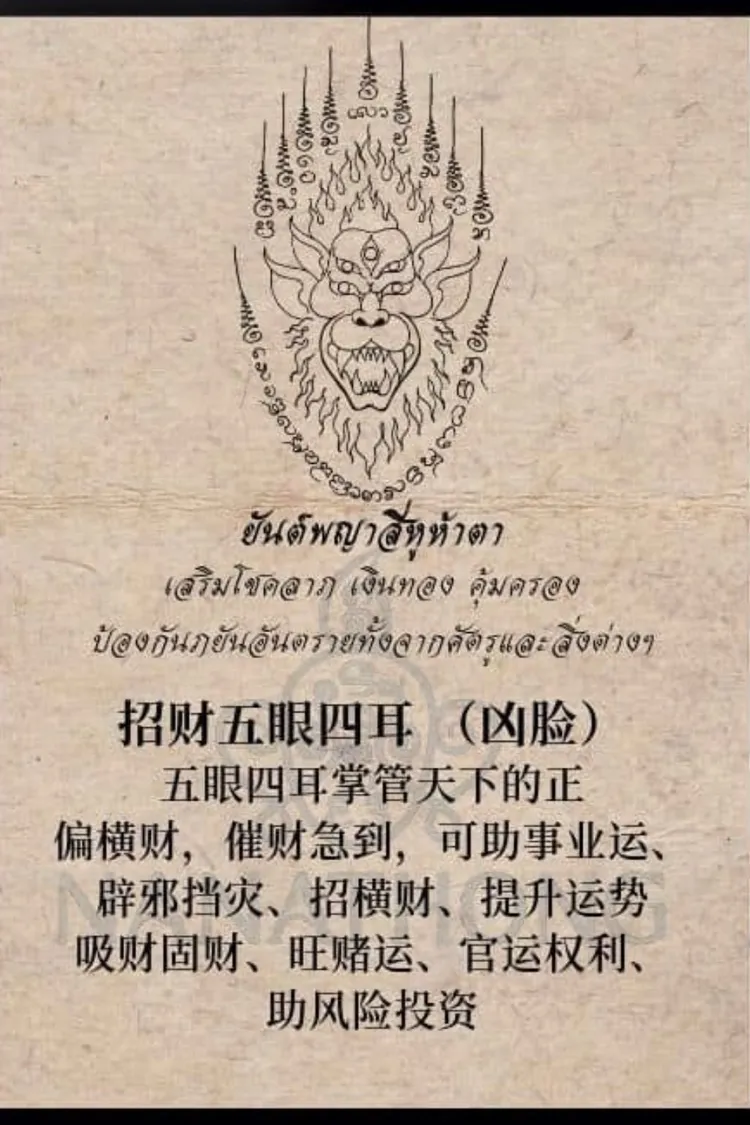 ยันต์พญาสี่หูห้าตา
เสริมโชคลาภ เงินทอง คุ้มครอง
ป้องกันภยันอันตรายทั้งจากศัตรูและสิ่งต่างๆ
招财五眼四耳 （凶脸）
五眼四耳掌管天下的正
偏横财，催财急到，可助事业运、
辟邪挡灾、招横财、提升运势
吸财固财、旺赌运、官运权利、
助风险投资